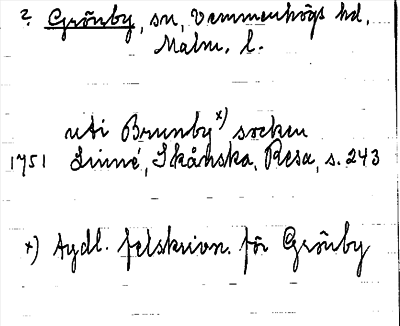 ? Grönby, sn, Vemmenhögs hd,
Malm. l.
uti Brunby x) socken
1751 Linné, Skånska Resa, s. 243
x) Tydl. felskrivn. för Grönby